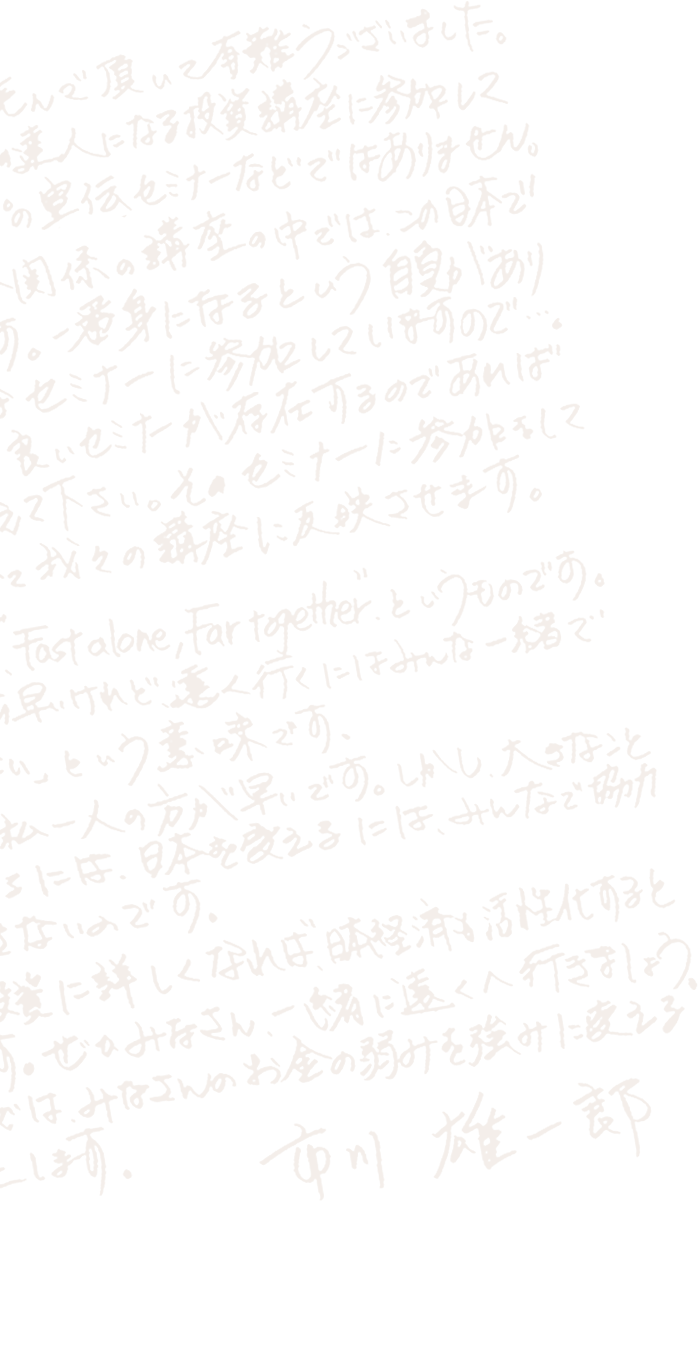 んで頂いて有難うございました。
達人になる投資講座に参加して
の宣伝セミナーなどではありません。
関係の講座の中では、この日本で
す。一番身になるという自負があり
なセミナーに参加していますので…。
良いセミナーが存在するのであれば
えて下さい。そのセミナーに参加をして
て我々の講座に反映させます。
Fast alone, Far together”.というものです。
早いけれど、遠くへ行くにはみんな一緒で
い」という意味です、
私一人の方が早いです。しかし、大きなこと
には、日本を変えるには、みんなで協力
きないのです。
投資に詳しくなれば、日本経済も活性化すると
す。ぜひみなさん、一緒に遠くへ行きましょう。
では、みなさんのお金の弱みを強みに変える
します。
市川 雄一郎